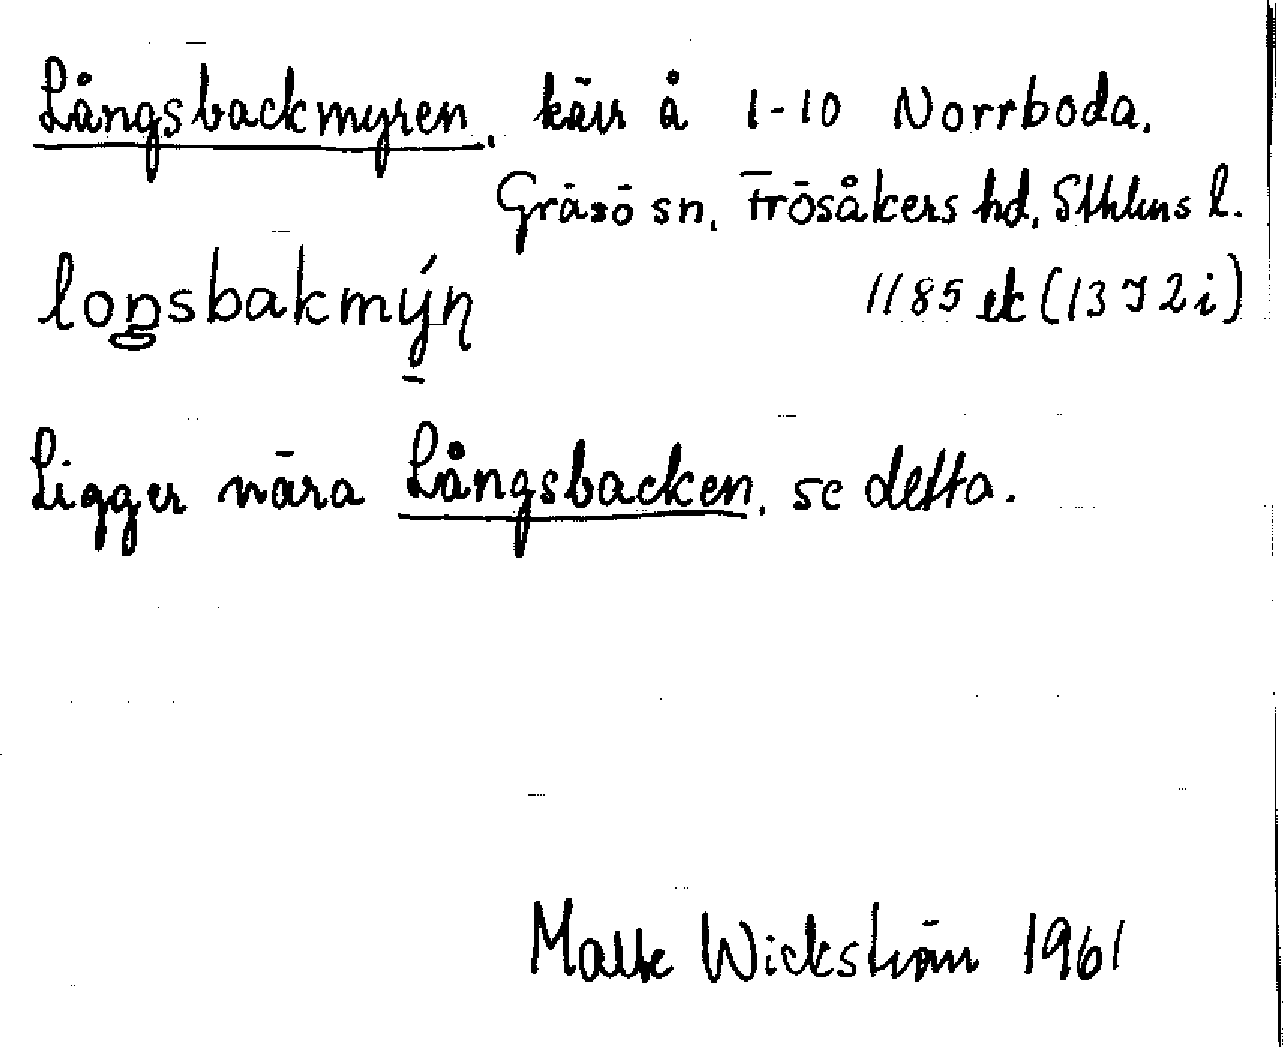 Långsbackmyren, kärr å 1-10 Norrboda.
Gräsö sn, Frösåkers hd, Sthlms l.
loŋsbakmýn
1185 ek (13 I 2 i)
Ligger nära Långsbacken, se detta.
Malte Wickström 1961